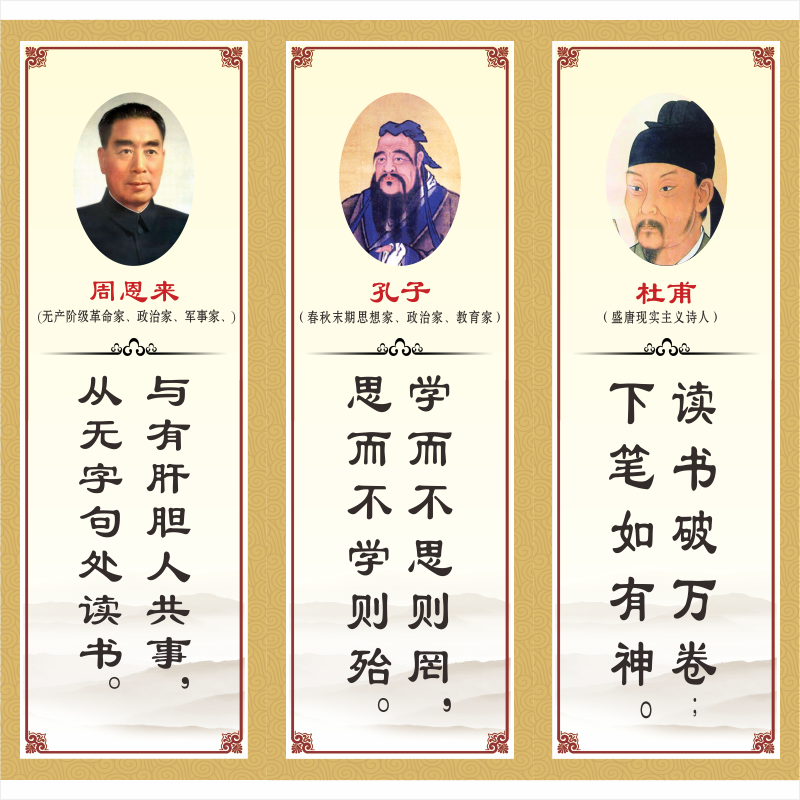 周恩来
(无产阶级革命家、政治家、军事家、)
与有肝胆人共事，
从无字句处读书。
孔子
(春秋末期思想家、政治家、教育家)
学而不思则罔，
思而不学则殆。
杜甫
(盛唐现实主义诗人)
读书破万卷；
下笔如有神。